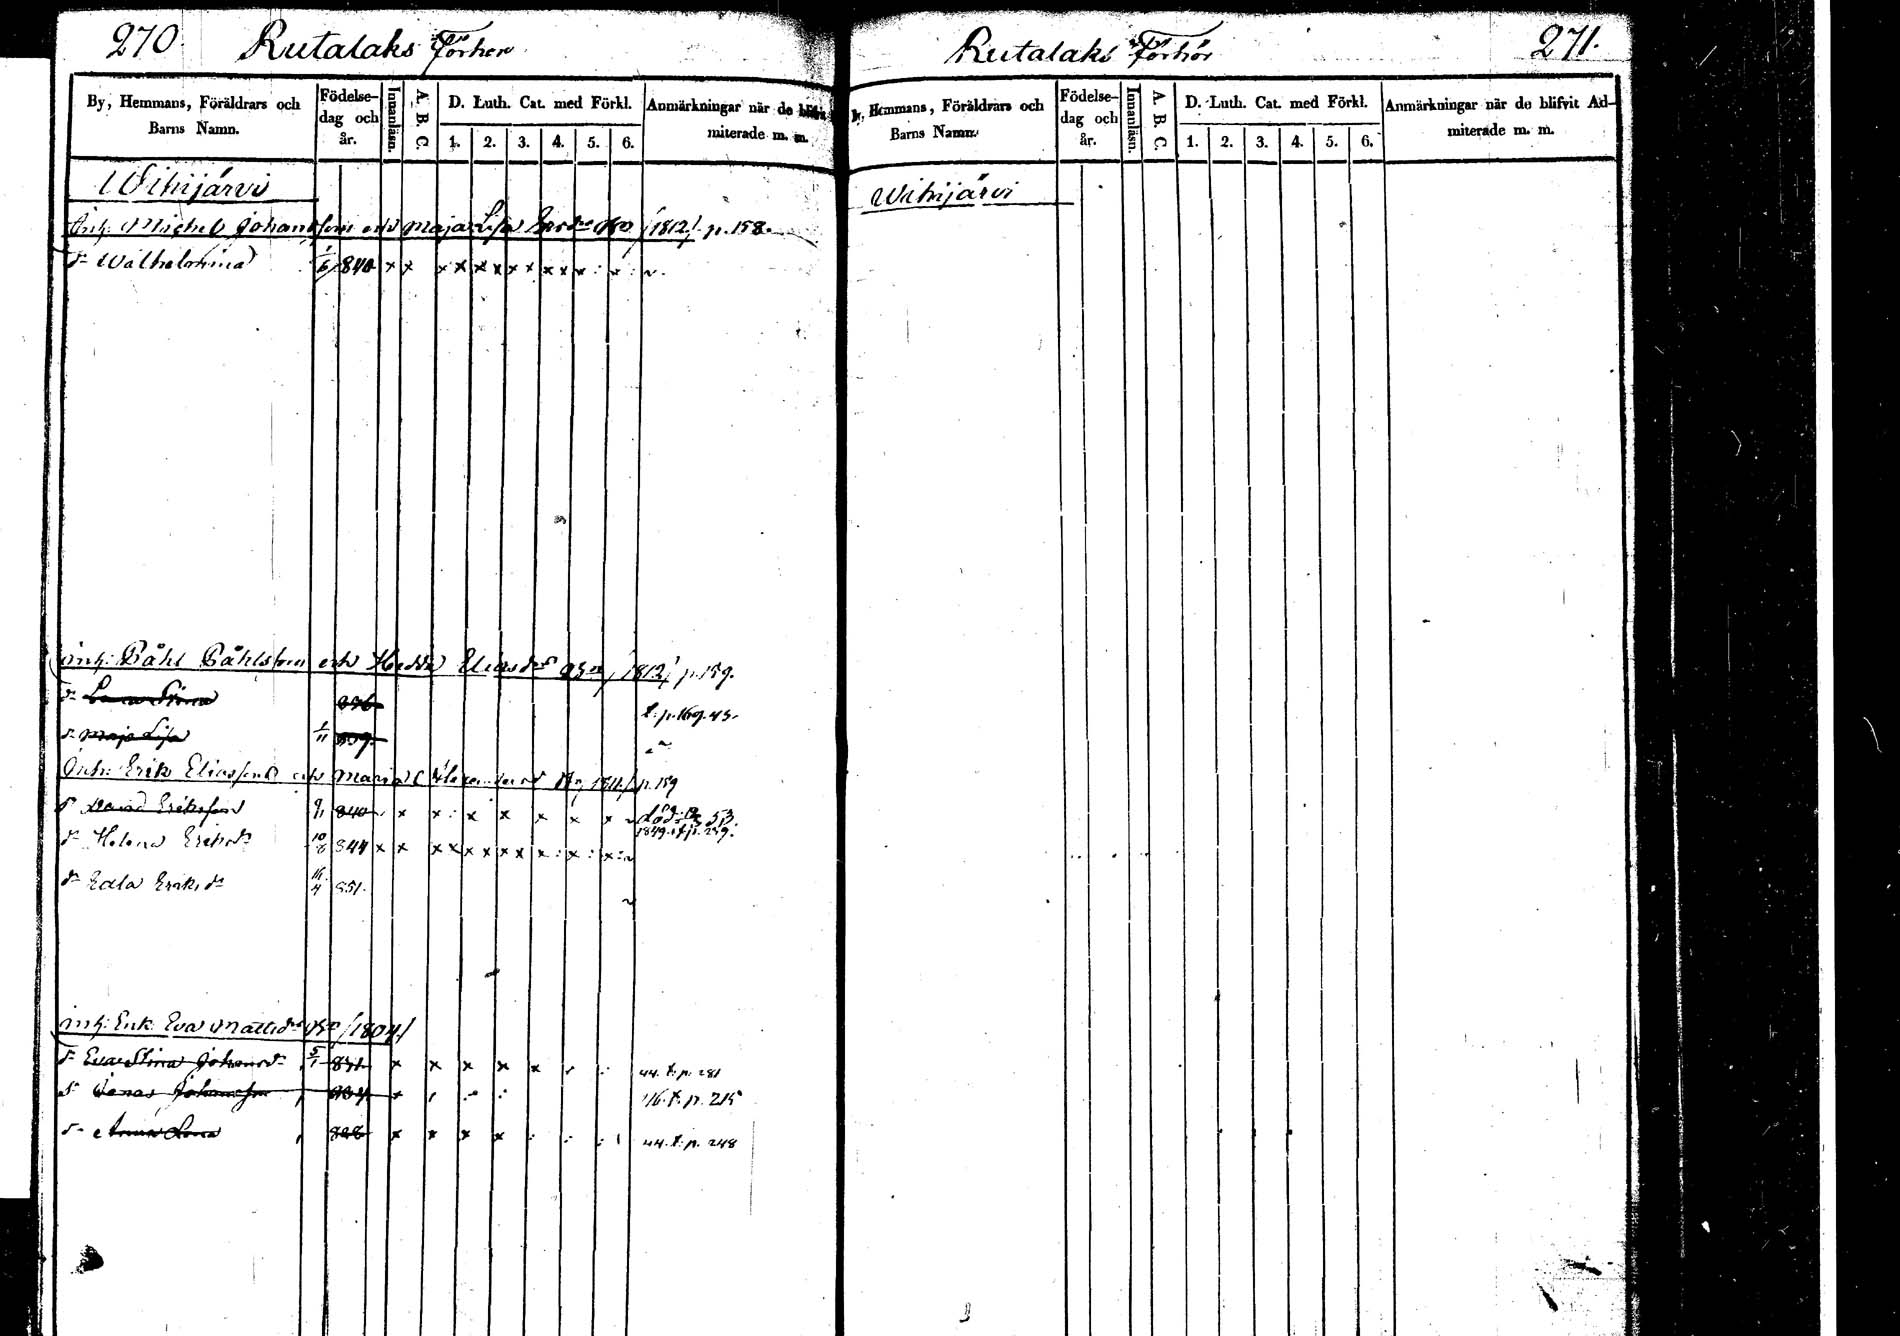 270. Rutalaks Förhör
By, Hemmans, Föräldrars och Barns Namn.
Födelse-dag och år.
Innanläsn.
A. B. C.
D. Luth. Cat. med Förkl.
1. 2. 3. 4. 5. 6.
Anmärkningar när de blifvit
miterade m. m.
Wihijärvi
Inh: Michel Johansson och Maja Lisa /1812/. p. 158.
dr Wilhelmina 1/6 840 x x x x x x x x x x x
inh: Påhl Påhlsson och Hedda Eliasdr /1812/ p. 159.
dr 836 t. p. 169. 43.
dr Maja Lisa 1/11 839.
Inh: Erik Eliasson och Maria 1811/ p. 159
s David Eriksson 9/1 840 x x x x x x x död 53.
1849. t. p. 239.
dr Helena Eriksdr 10/8 844 x x x x x x x x x x x
dr Edla Eriksdr 16/4 851.
inh: Enk: Eva Mattsdr /1804/
dr Eva Stina Johansdr 5/1 831 x x x x x 44. t. p. 281
s Jonas Johansson 834 x 46. t. p. 215
dr Anna Lena 828 x x x x 44. t. p. 248
Rutalaks Förhör 271.
Hemmans, Föräldrars och Barns Namn.
Födelse-dag och år.
Innanläsn.
A. B. C.
D. Luth. Cat. med Förkl.
1. 2. 3. 4. 5. 6.
Anmärkningar när de blifvit Ad-
miterade m. m.
Wihijärvi